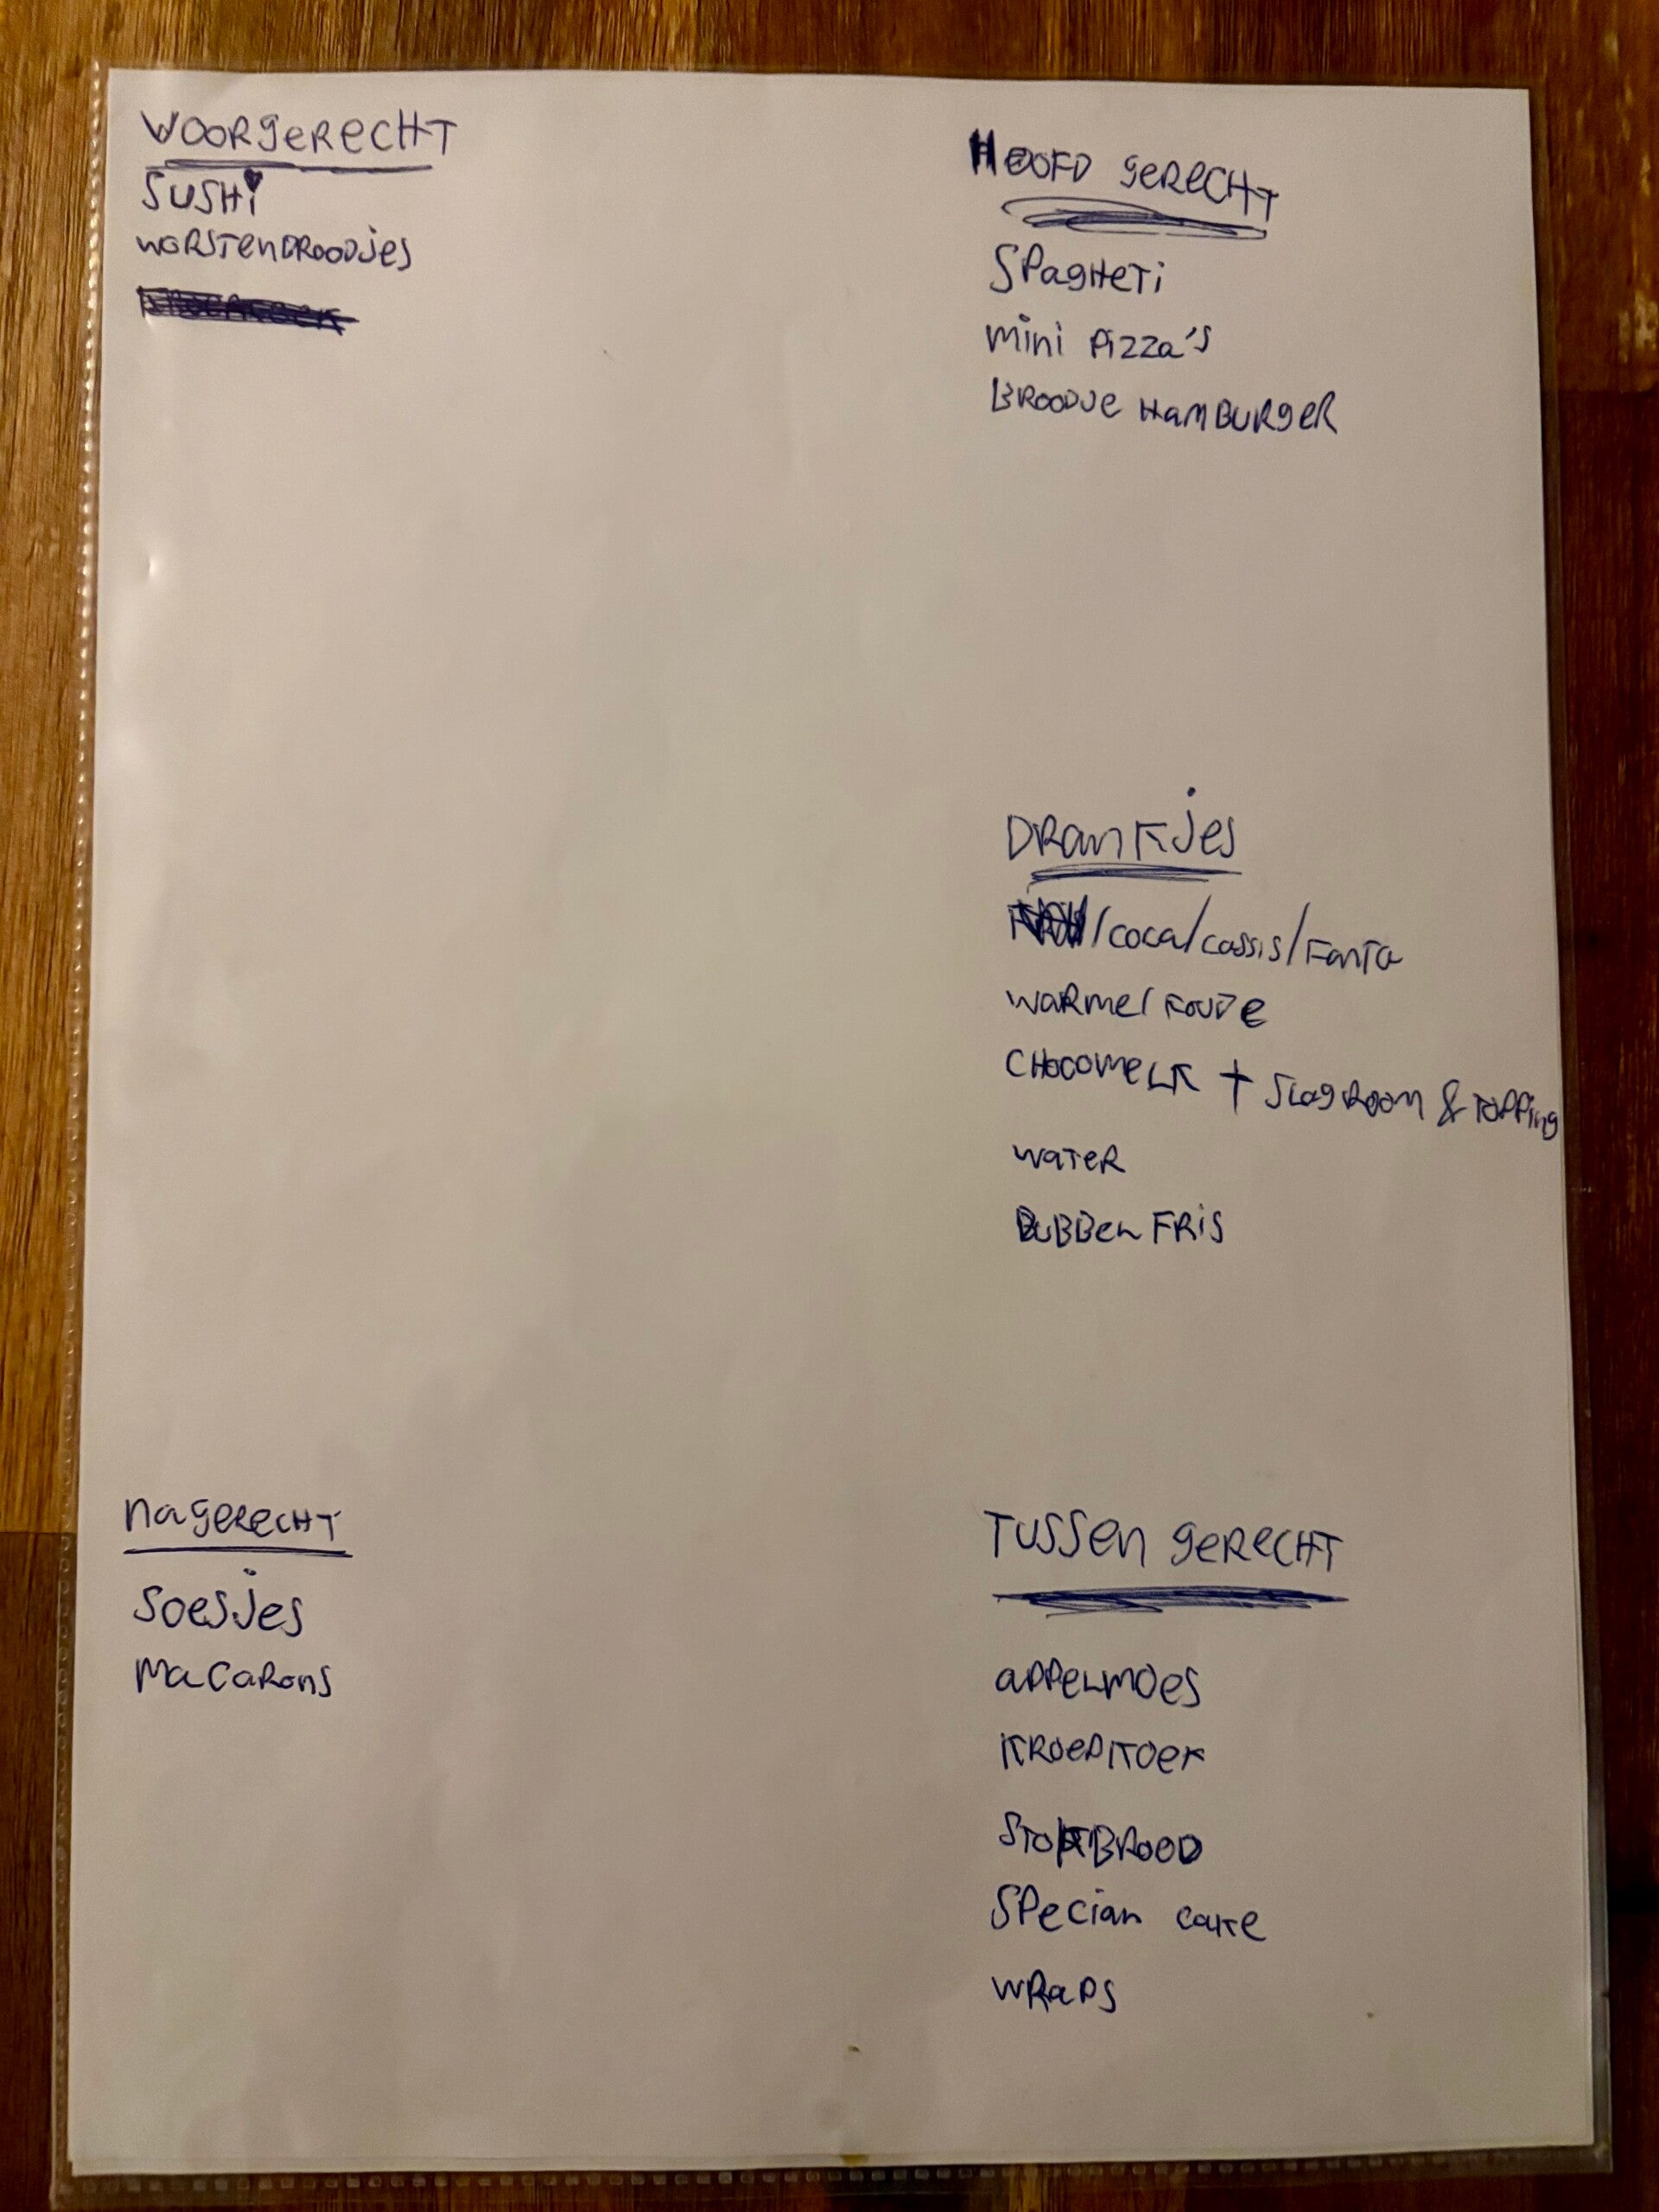 VOORgeRECHT
SUSHi
WORSTenBROODjes
HOOFD geRECHT
SPagHeTi
mini Pizza's
BROODJe HamBURgeR
DRanKjes
/coca/cassis/Fanta
waRme/KouDe
CHocomeLK + SLagRoom & TOPPing
waTeR
BuBBeL FRiS
nageRecHT
Soesjes
MaCaRons
TUSSen geRECHT
aPPeLmoes
KRoePKoeK
SToKBROOD
SPeciaL caKe
WRaPS